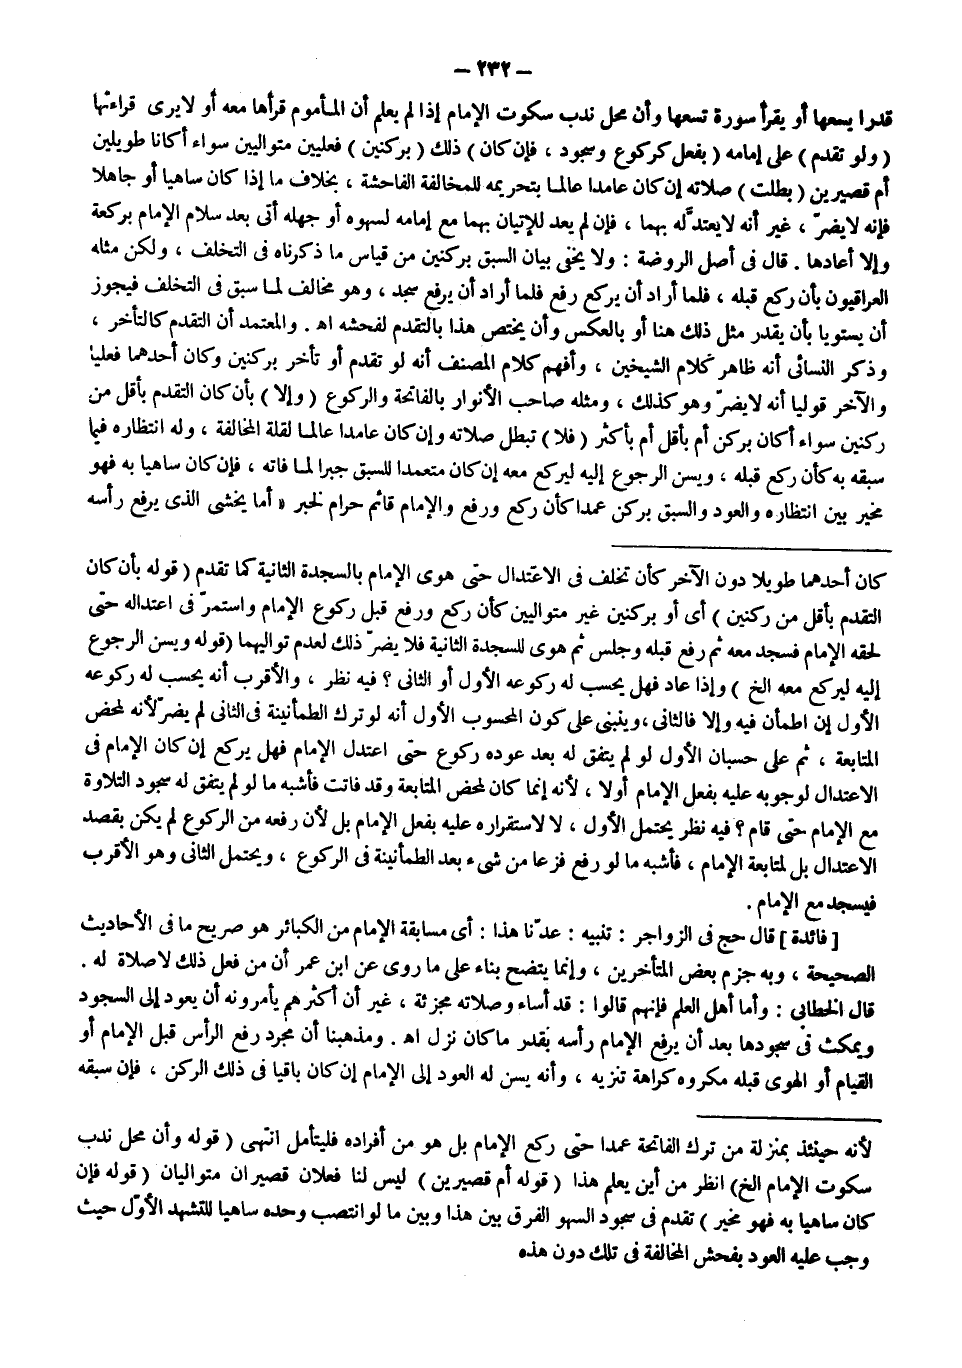 — ٢٣٢ —
قدرا يسعها أو يقرأ سورة تسعها وأن محل ندب سكوت الإمام إذا لم يعلم أن المأموم قرأها معه أو لايرى قراءتها
( ولو تقدم ) على إمامه ( بفعل كركوع وسجود ، فإن كان ) ذلك ( بركنين ) فعليين متواليين سواء أكانا طويلين
أم قصيرين ( بطلت ) صلاته إن كان عامدا عالما بتحريمه للمخالفة الفاحشة ، بخلاف ما إذا كان ساهيا أو جاهلا
فإنه لايضرّ ، غير أنه لايعتدّ له بهما ، فإن لم يعد للإتيان بهما مع إمامه لسهوه أو جهله أتى بعد سلام الإمام بركعة
وإلا أعادها . قال فى أصل الروضة : ولا يخفى بيان السبق بركنين من قياس ما ذكرناه فى التخلف ، ولكن مثله
العراقيون بأن ركع قبله ، فلما أراد أن يركع رفع فلما أراد أن يرفع سجد ، وهو مخالف لما سبق فى التخلف فيجوز
أن يستويا بأن يقدر مثل ذلك هنا أو بالعكس وأن يختص هذا بالتقدم لفحشه اه . والمعتمد أن التقدم كالتأخر ،
وذكر النسائى أنه ظاهر كلام الشيخين ، وأفهم كلام المصنف أنه لو تقدم أو تأخر بركنين وكان أحدهما فعليا
والآخر قوليا أنه لايضرّ وهو كذلك ، ومثله صاحب الأنوار بالفاتحة والركوع ( وإلا ) بأن كان التقدم بأقل من
ركنين سواء أكان بركن أم بأقل أم بأكثر ( فلا ) تبطل صلاته وإن كان عامدا عالما لقلة المخالفة ، وله انتظاره فيما
سبقه به كأن ركع قبله ، ويسن الرجوع إليه ليركع معه إن كان متعمدا للسبق جبرا لما فاته ، فإن كان ساهيا به فهو
مخير بين انتظاره والعود والسبق بركن عمدا كأن ركع ورفع والإمام قائم حرام لخبر « أما يخشى الذى يرفع رأسه
كان أحدهما طويلا دون الآخر كأن تخلف فى الاعتدال حتى هوى الإمام بالسجدة الثانية كما تقدم ( قوله بأن كان
التقدم بأقل من ركنين ) أى أو بركنين غير متواليين كأن ركع ورفع قبل ركوع الإمام واستمرّ فى اعتداله حتى
لحقه الإمام فسجد معه ثم رفع قبله وجلس ثم هوى للسجدة الثانية فلا يضرّ ذلك لعدم تواليهما (قوله ويسن الرجوع
إليه ليركع معه الخ ) وإذا عاد فهل يحسب له ركوعه الأول أو الثانى ؟ فيه نظر ، والأقرب أنه يحسب له ركوعه
الأول إن اطمأن فيه وإلا فالثانى ، وينبنى على كون المحسوب الأول أنه لو ترك الطمأنينة فى الثانى لم يضرّ لأنه لمحض
المتابعة ، ثم على حسبان الأول لو لم يتفق له بعد عوده ركوع حتى اعتدل الإمام فهل يركع إن كان الإمام فى
الاعتدال لوجوبه عليه بفعل الإمام أولا ، لأنه إنما كان لمحض المتابعة وقد فاتت فأشبه ما لو لم يتفق له سجود التلاوة
مع الإمام حتى قام ؟ فيه نظر يحتمل الأول ، لا لاستقراره عليه بفعل الإمام بل لأن رفعه من الركوع لم يكن بقصد
الاعتدال بل لمتابعة الإمام ، فأشبه ما لو رفع فزعا من شىء بعد الطمأنينة فى الركوع ، ويحتمل الثانى وهو الأقرب
فيسجد مع الإمام .
[ فائدة ] قال حج فى الزواجر : تنبيه : عدّنا هذا : أى مسابقة الإمام من الكبائر هو صريح ما فى الأحاديث
الصحيحة ، وبه جزم بعض المتأخرين ، وإنما يتضح بناء على ما روى عن ابن عمر أن من فعل ذلك لاصلاة له .
قال الخطابى : وأما أهل العلم فإنهم قالوا : قد أساء وصلاته مجزئة ، غير أن أكثرهم يأمرونه أن يعود إلى السجود
ويمكث فى سجودها بعد أن يرفع الإمام رأسه بقدر ماكان نزل اه . ومذهبنا أن مجرد رفع الرأس قبل الإمام أو
القيام أو الهوى قبله مكروه كراهة تنزيه ، وأنه يسن له العود إلى الإمام إن كان باقيا فى ذلك الركن ، فإن سبقه
لأنه حينئذ بمنزلة من ترك الفاتحة عمدا حتى ركع الإمام بل هو من أفراده فليتأمل انتهى ( قوله وأن محل ندب
سكوت الإمام الخ) انظر من أين يعلم هذا ( قوله أم قصيرين ) ليس لنا فعلان قصيران متواليان ( قوله فإن
كان ساهيا به فهو مخير ) تقدم فى سجود السهو الفرق بين هذا وبين ما لو انتصب وحده ساهيا للتشهد الأوّل حيث
وجب عليه العود بفحش المخالفة فى تلك دون هذه